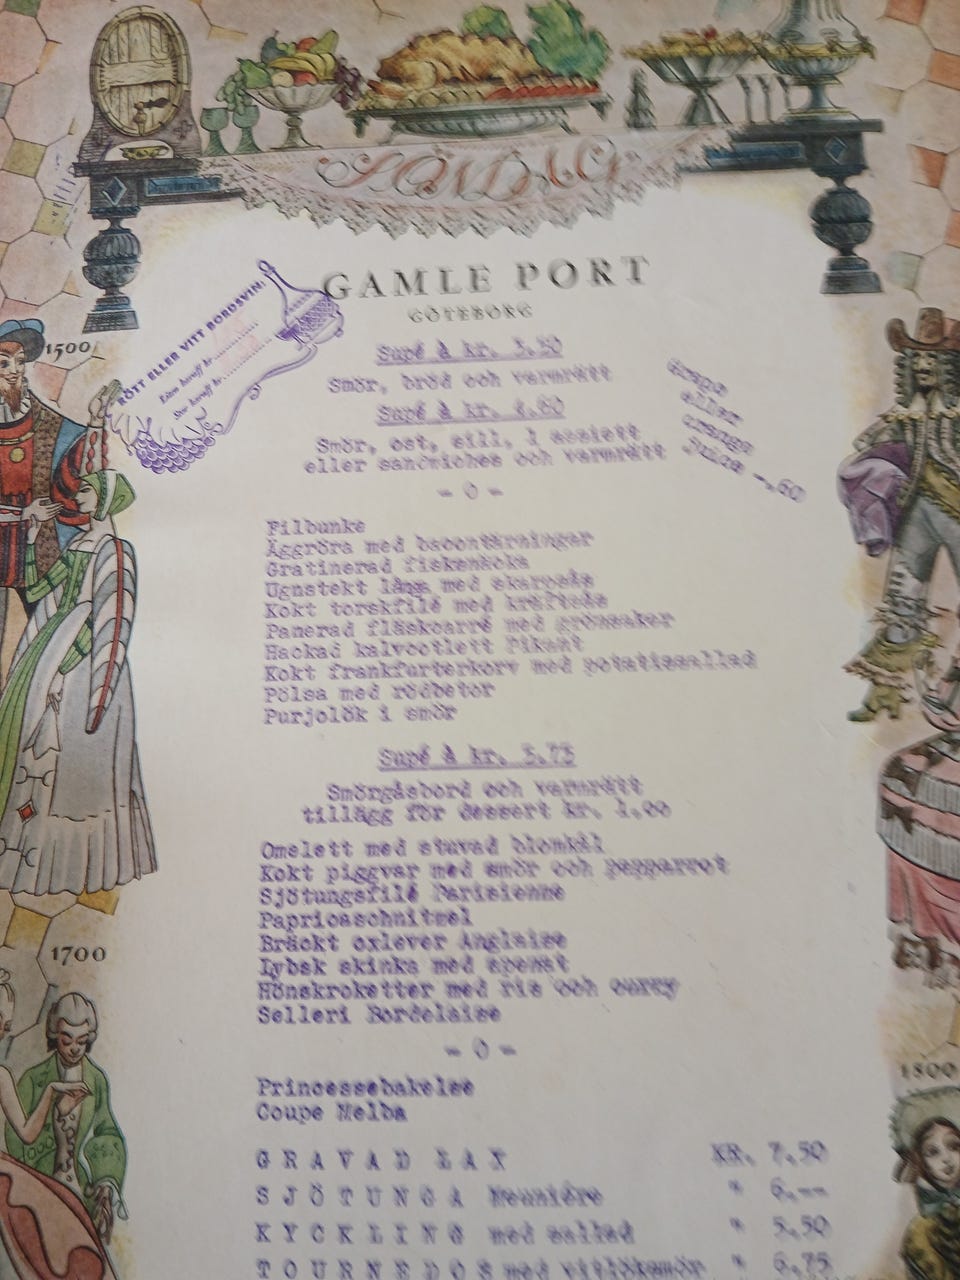 SÖNDAG
GAMLE PORT
GÖTEBORG
1500
RÖTT ELLER VITT BORDSVIN:
Liten karaff kr.
Stor karaff kr.
Supé à kr.
Smör, bröd och varmrätt
Supé à kr. 4.60
Smör, ost, sill, 1 assiett
eller sandwiches och varmrätt
Grape
eller
orange
Juice -.60
- 0 -
Filbunke
Äggröra med bacontärningar
Gratinerad fisksnöcka
Ugnstekt lång med skarpsås
Kokt torskfilé med kräftsås
Panerad fläskcarré med grönsaker
Hackad kalvcotlett Pikant
Kokt frankfurterkorv med potatissallad
Pölsa med rödbetor
Purjolök i smör
Supé à kr. 5.75
Smörgåsbord och varmrätt
tillägg för dessert kr. 1.00
Omelett med stuvad blomkål
Kokt piggvar med smör och pepparrot
Sjötungsfilé Parisienne
Papricaschnitzel
Bräckt oxlever Anglaise
Lybsk skinka med spenat
Hönskroketter med ris och curry
Selleri Bordelaise
1700
- 0 -
1800
Princessebakelse
Coupe Melba
GRAVAD LAX KR. 7.50
SJÖTUNGA Meuniére " 6.--
KYCKLING med sallad " 5.50
TOURNEDOS med vitlöksmör " 6.75